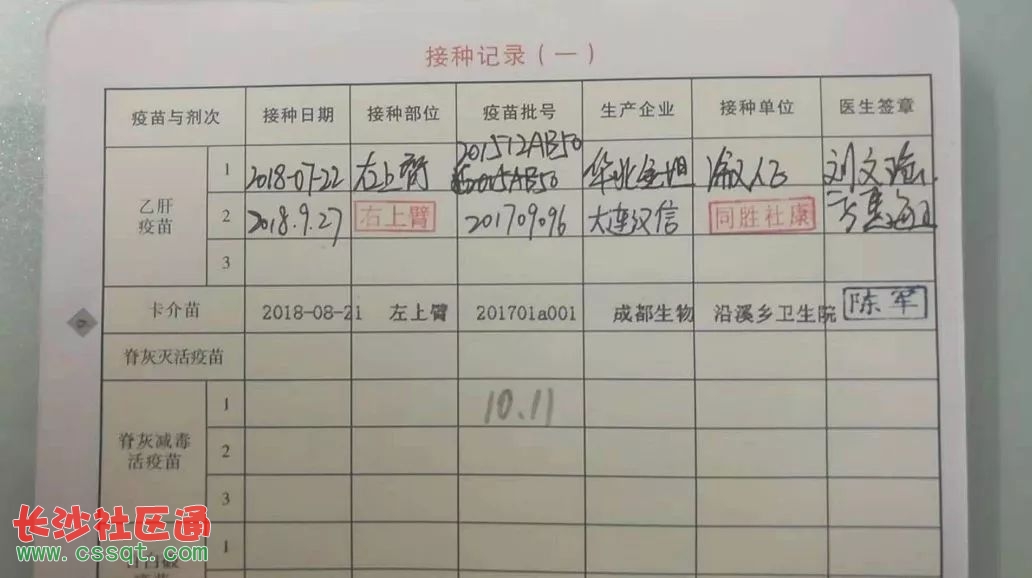 接种记录（一）
疫苗与剂次 接种日期 接种部位 疫苗批号 生产企业 接种单位 医生签章
乙肝疫苗
1 2018-07-22 左上臂 201512AB50 华北金坦 人民 刘文
2 2018.9.27 右上臂 201709096 大连汉信 同胜社康
3
卡介苗 2018-08-21 左上臂 201701a001 成都生物 沿溪乡卫生院 陈军
脊灰灭活疫苗
脊灰减毒
活疫苗
1 10.11
2
3
1
长沙社区通
www.cssqt.com